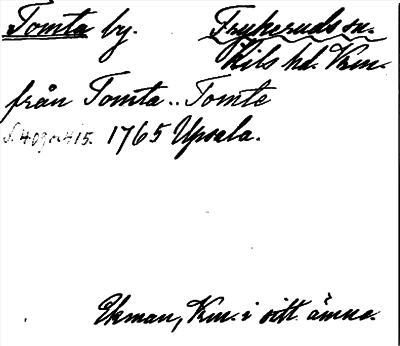 Tomta by. Frykeruds sn.
Kils hd. Vrm.
från Tomta.. Tomte
S. 409 o. 415. 1765 Upsala.
Ekman, Vrm. i sitt ämne.